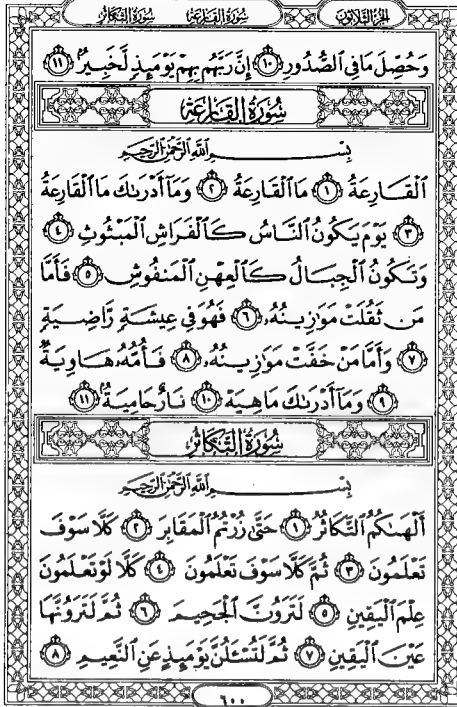 الجزء الثلاثون سورة القارعة سورة التكاثر
وَحُصِّلَ مَا فِي ٱلصُّدُورِ ١٠ إِنَّ رَبَّهُم بِهِمۡ يَوۡمَئِذٖ لَّخَبِيرُۢ ١١
سُورَةُ القَارِعَةِ
بِسۡمِ ٱللَّهِ ٱلرَّحۡمَٰنِ ٱلرَّحِيمِ
ٱلۡقَارِعَةُ ١ مَا ٱلۡقَارِعَةُ ٢ وَمَآ أَدۡرَىٰكَ مَا ٱلۡقَارِعَةُ
٣ يَوۡمَ يَكُونُ ٱلنَّاسُ كَٱلۡفَرَاشِ ٱلۡمَبۡثُوثِ ٤
وَتَكُونُ ٱلۡجِبَالُ كَٱلۡعِهۡنِ ٱلۡمَنفُوشِ ٥ فَأَمَّا
مَن ثَقُلَتۡ مَوَٰزِينُهُۥ ٦ فَهُوَ فِي عِيشَةٖ رَّاضِيَةٖ
٧ وَأَمَّا مَنۡ خَفَّتۡ مَوَٰزِينُهُۥ ٨ فَأُمُّهُۥ هَاوِيَةٞ
٩ وَمَآ أَدۡرَىٰكَ مَا هِيَهۡ ١٠ نَارٌ حَامِيَةُۢ ١١
سُورَةُ التَّكَاثُرِ
بِسۡمِ ٱللَّهِ ٱلرَّحۡمَٰنِ ٱلرَّحِيمِ
أَلۡهَىٰكُمُ ٱلتَّكَاثُرُ ١ حَتَّىٰ زُرۡتُمُ ٱلۡمَقَابِرَ ٢ كَلَّا سَوۡفَ
تَعۡلَمُونَ ٣ ثُمَّ كَلَّا سَوۡفَ تَعۡلَمُونَ ٤ كَلَّا لَوۡ تَعۡلَمُونَ
عِلۡمَ ٱلۡيَقِينِ ٥ لَتَرَوُنَّ ٱلۡجَحِيمَ ٦ ثُمَّ لَتَرَوُنَّهَا
عَيۡنَ ٱلۡيَقِينِ ٧ ثُمَّ لَتُسۡـَٔلُنَّ يَوۡمَئِذٍ عَنِ ٱلنَّعِيمِ ٨
٦٠٠